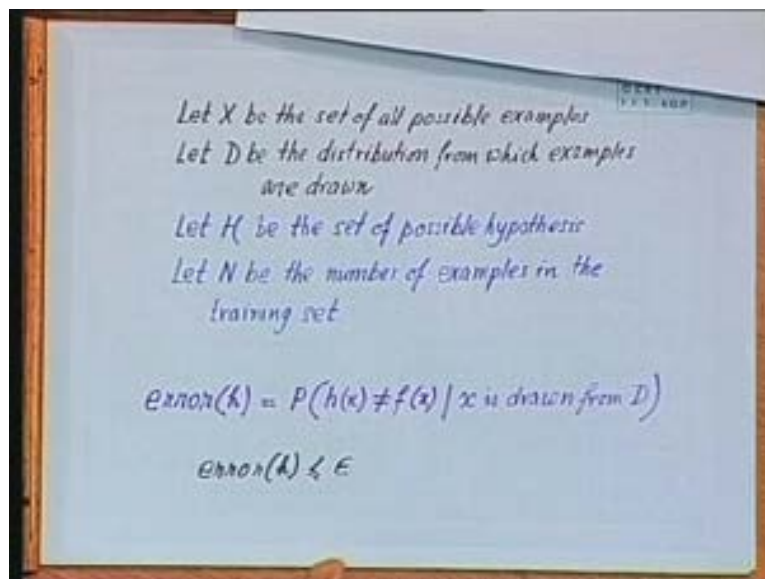 Let X be the set of all possible examples
Let D be the distribution from which examples
are drawn
Let H be the set of possible hypothesis
Let N be the number of examples in the
training set
error(h) = P(h(x) ≠ f(x) | x is drawn from D)
error(h) ≤ ϵ